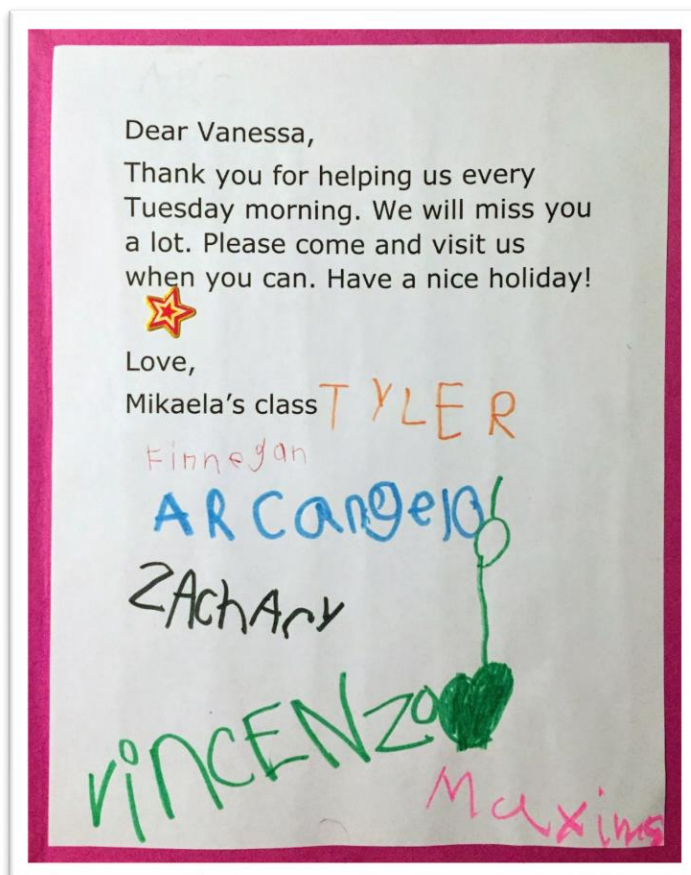 Dear Vanessa,
Thank you for helping us every
Tuesday morning. We will miss you
a lot. Please come and visit us
when you can. Have a nice holiday!
Love,
Mikaela’s class TYLER
Finnegan
ARCangelo
ZAchAry
viNCENzo